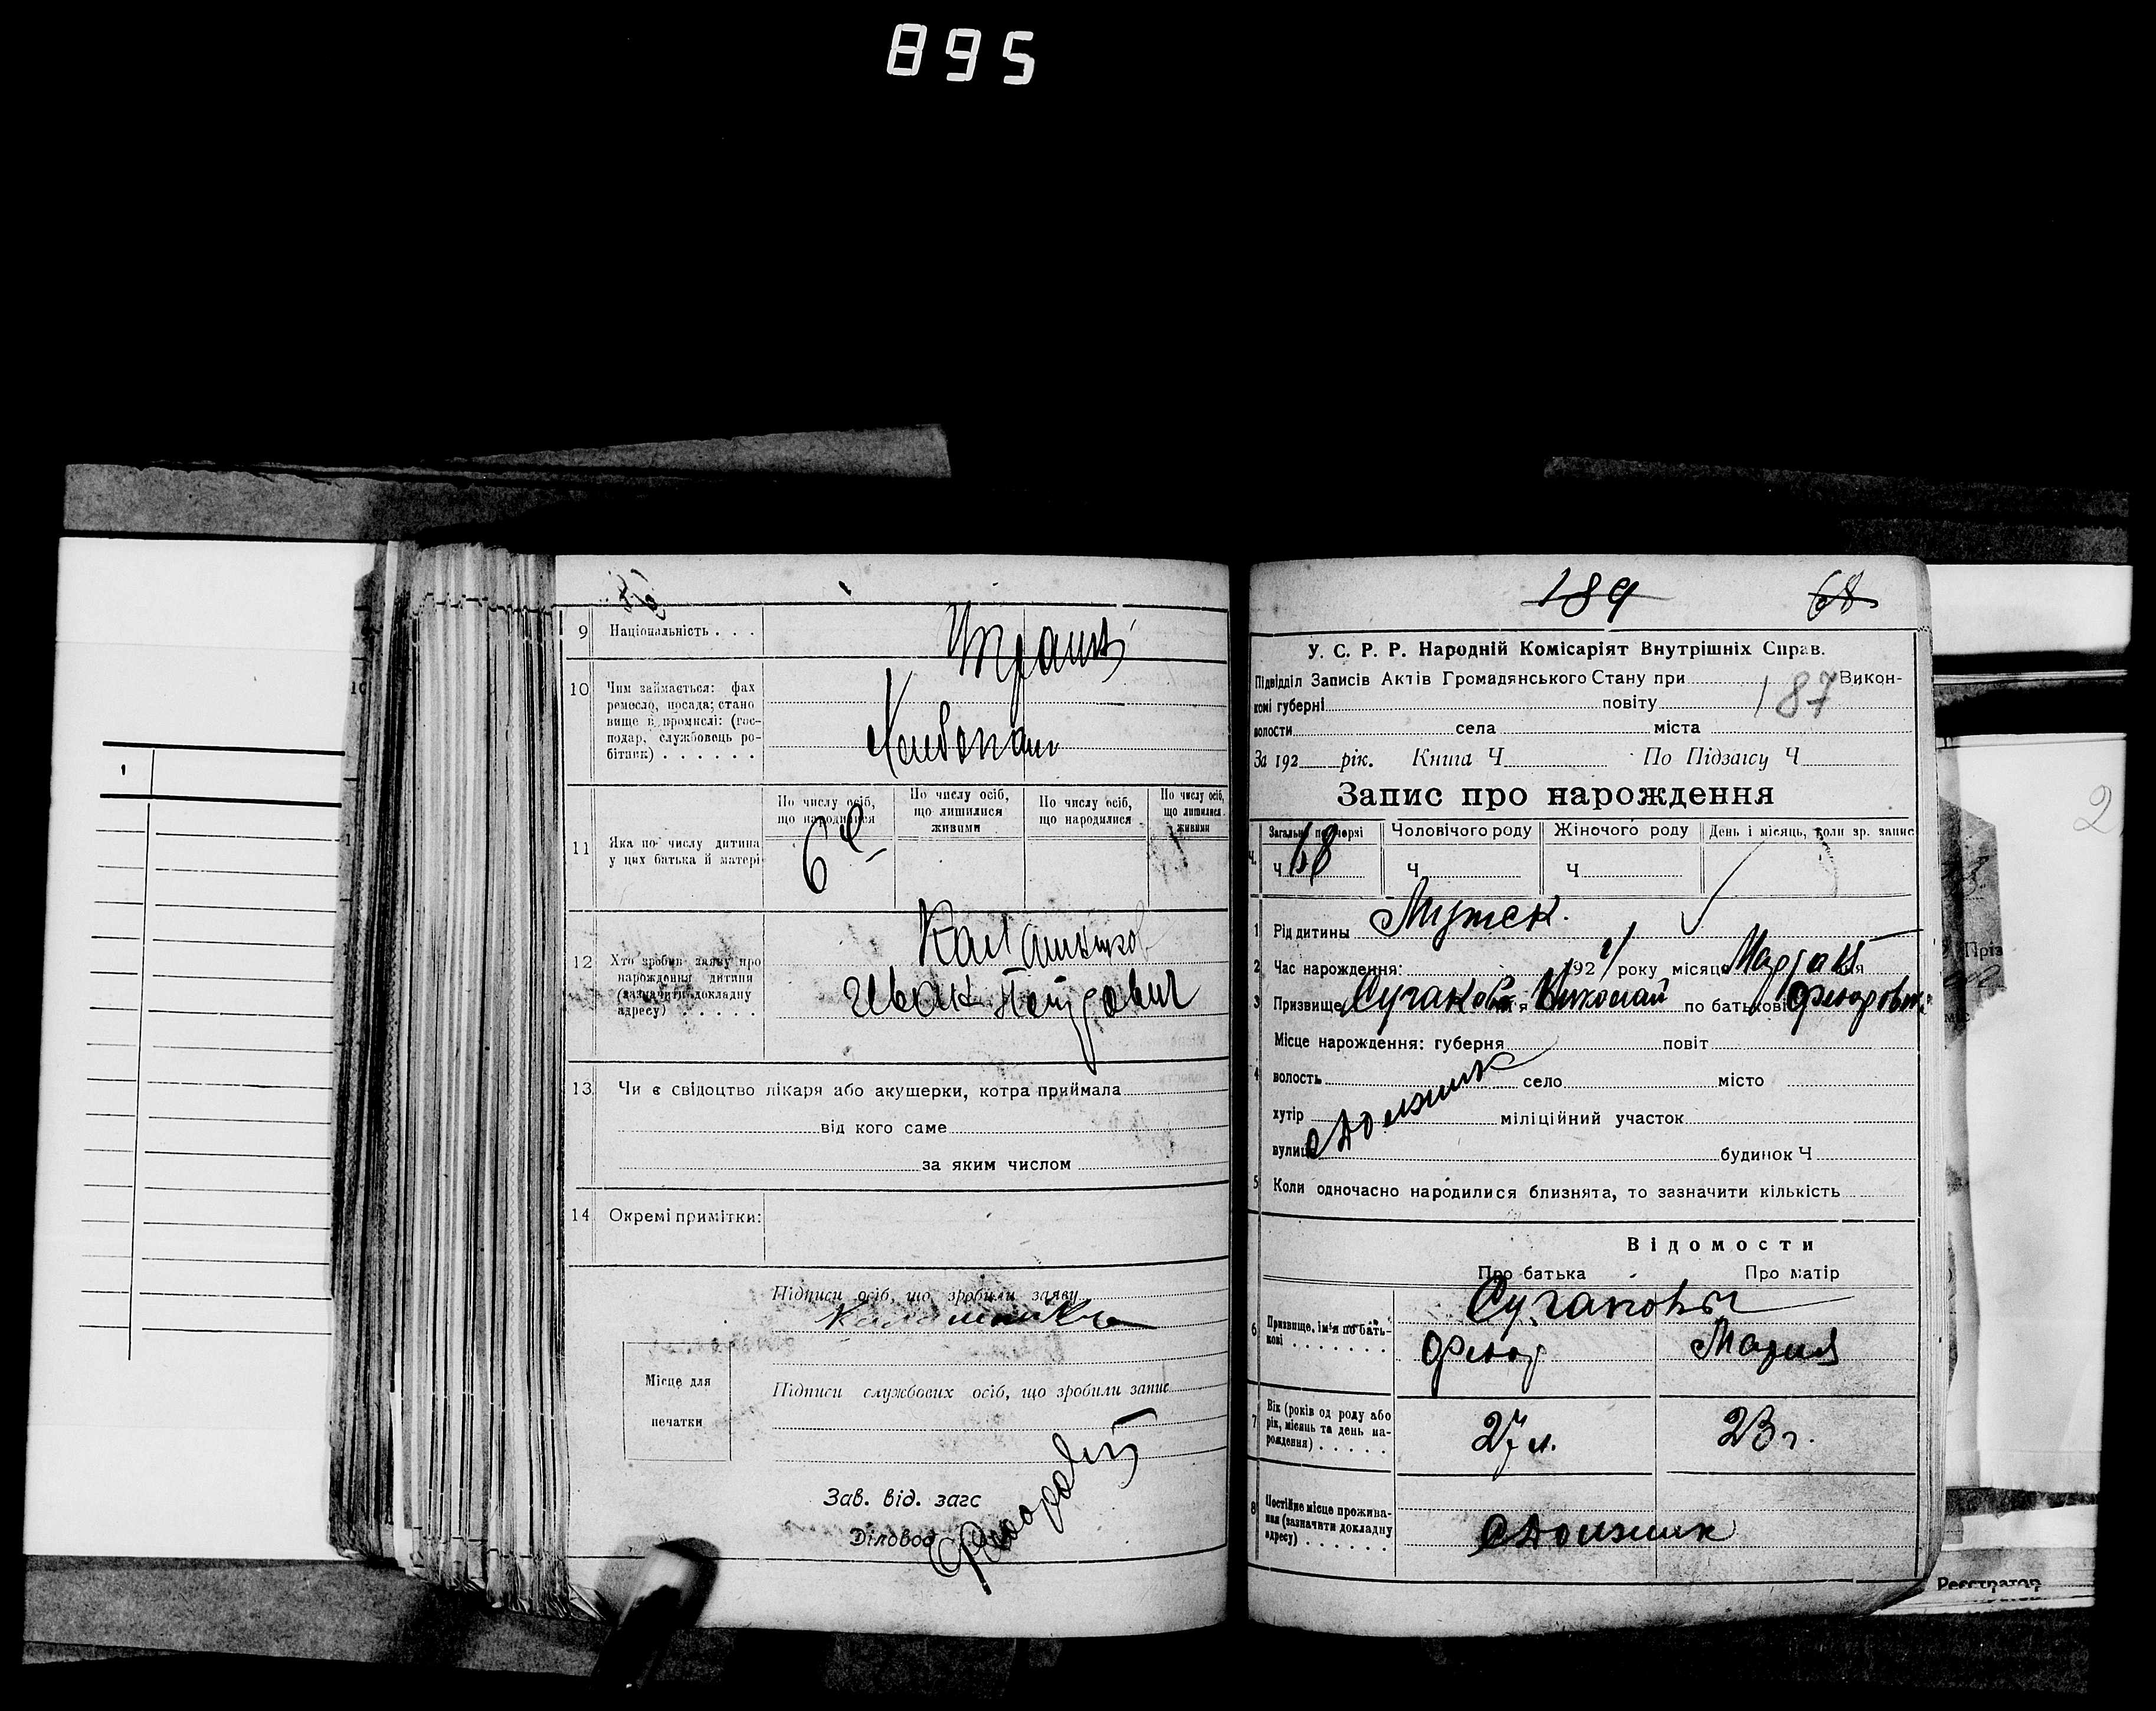 895
9 Національність . . .
Украин
10 Чим займається: фах
ремесло, посада; стано
вище в промислі: (гос-
подар, службовець ро-
бітник) . . . . . .
Хлебопаш
11 Яка по числу дитина
у цих батька й матері
По числу осіб,
що народилися
По числу осіб,
що лишилися
живими
По числу осіб,
що народилися
По числу осіб,
що лишилися
живими
6й
12 Хто зробив заяву про
нарождення дитини
(зазначити докладну
адресу) . . . . .
Калашников
Иван
13 Чи є свідоцтво лікаря або акушерки, котра приймала
від кого саме
за яким числом
14 Окремі примітки:
Підписи осіб, що зробили заяву
Калашников
Місце для
печатки
Підписи службових осіб, що зробили запис
Зав. від. загс
Діловод
189 68
У. С. Р. Р. Народній Комісаріят Внутрішніх Справ.
Підвідділ Записів Актів Громадянського Стану при 187 Викон-
комі губерні повіту
волости села міста
За 192 рік. Книга Ч. По Підзагсу Ч.
Запис про нарождення
Загальн. по черзі Чоловічого роду Жіночого роду День і місяць, коли зр. запис
Ч. Ч. 68 Ч. Ч.
1 Рід дитини Мужск.
2 Час нарождення: 192 року місяць Марта 15 дня
3 Призвище Сучакова Николай по батькові Федоров
Місце нарождення: губерня повіт
4 волость село місто
хутір міліційний участок
вулиця будинок Ч
Должик
5 Коли одночасно народилися близнята, то зазначити кількість
Відомости
Про батька Про матір
6 Призвище, ім'я по бать-
кові . . . . . . .
Сучаковы
Федор Мария
7 Вік (років од роду або
рік, місяць та день на-
рождення) . . . . .
27 л. 23 г.
8 Постійне місце прожива-
ння (зазначити докладну
адресу) . . . . . .
Должик
Реєстратор